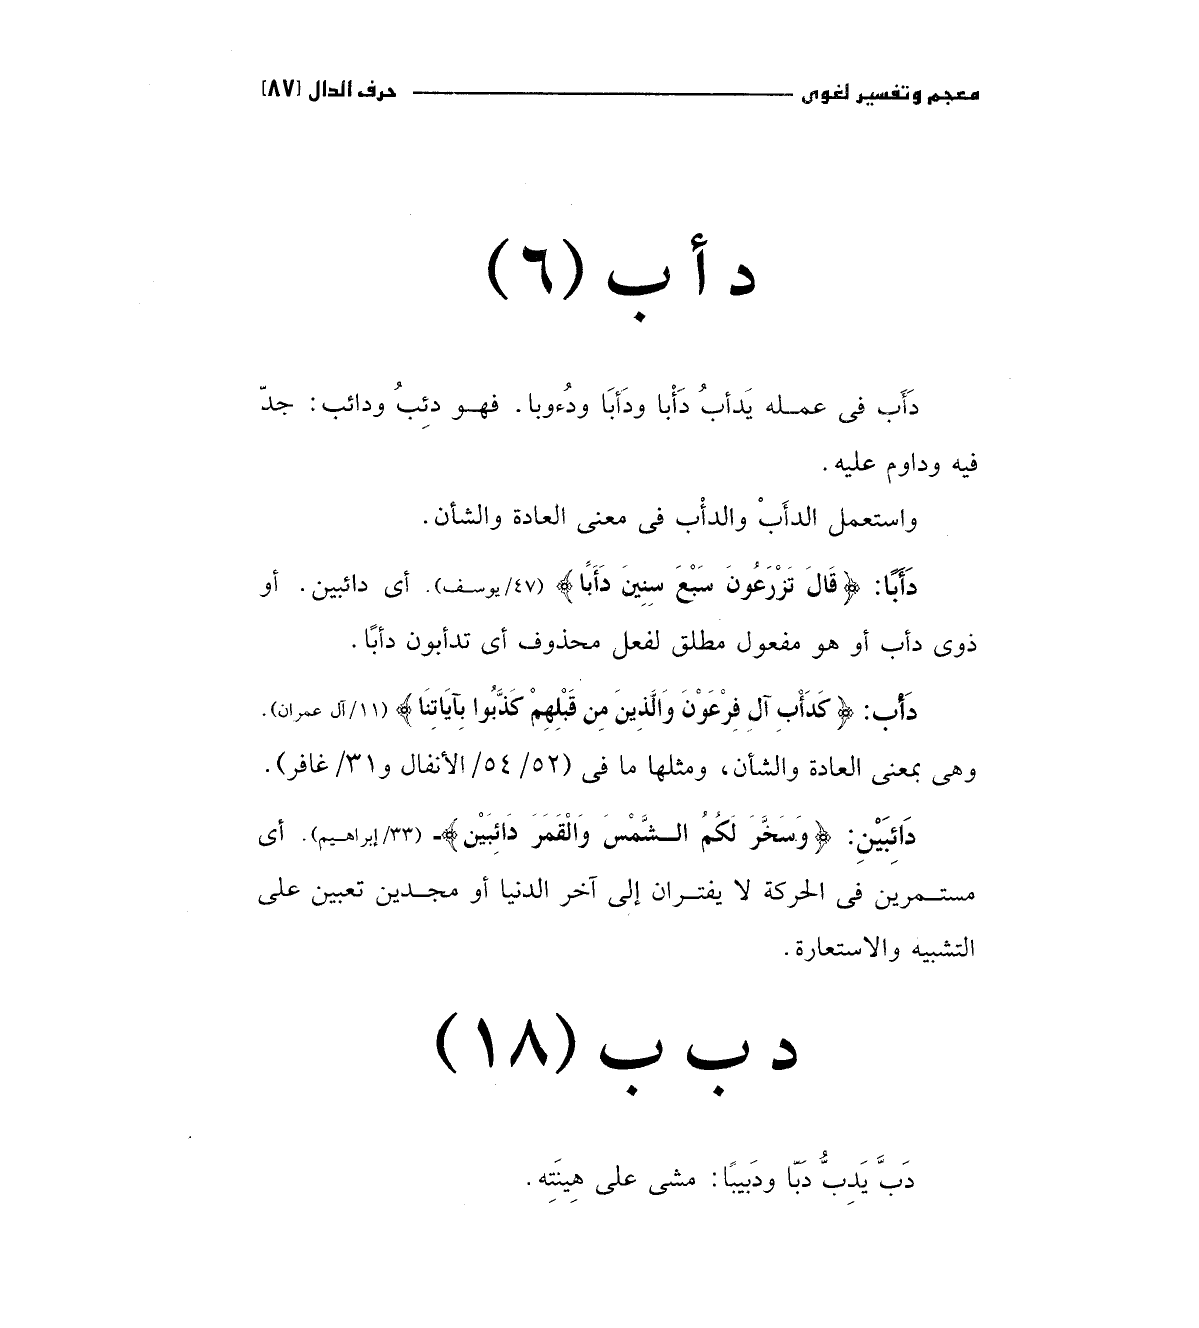 معجم وتفسير لغوى
حرف الدال [٨٧]
د أ ب (٦)
دَأَب فى عمله يَدأبُ دَأْبا ودَأبَا ودُءوبا. فهو دئِبُ ودائب: جدّ
فيه وداوم عليه.
واستعمل الدأَبْ والدأْب فى معنى العادة والشأن.
دَأَبًا: ﴿قَالَ تَزْرَعُونَ سَبْعَ سِنِينَ دَأَبًا﴾ (٤٧/يوسف). أى دائبين. أو
ذوى دأب أو هو مفعول مطلق لفعل محذوف أى تدأبون دأبًا.
دَأْب: ﴿كَدَأْبِ آلِ فِرْعَوْنَ وَالَّذِينَ مِن قَبْلِهِمْ كَذَّبُوا بِآيَاتِنَا﴾ (١١/آل عمران).
وهى بمعنى العادة والشأن، ومثلها ما فى (٥٢/ ٥٤/ الأنفال و٣١/ غافر).
دَائِبَيْنِ: ﴿وَسَخَّرَ لَكُمُ الشَّمْسَ وَالْقَمَرَ دَائِبَيْن﴾ـ (٣٣/إبراهيم). أى
مستمرين فى الحركة لا يفتران إلى آخر الدنيا أو مجدين تعبين على
التشبيه والاستعارة.
د ب ب (١٨)
دَبَّ يَدِبُّ دَبّا ودَبيبًا: مشى على هِينَتِه.